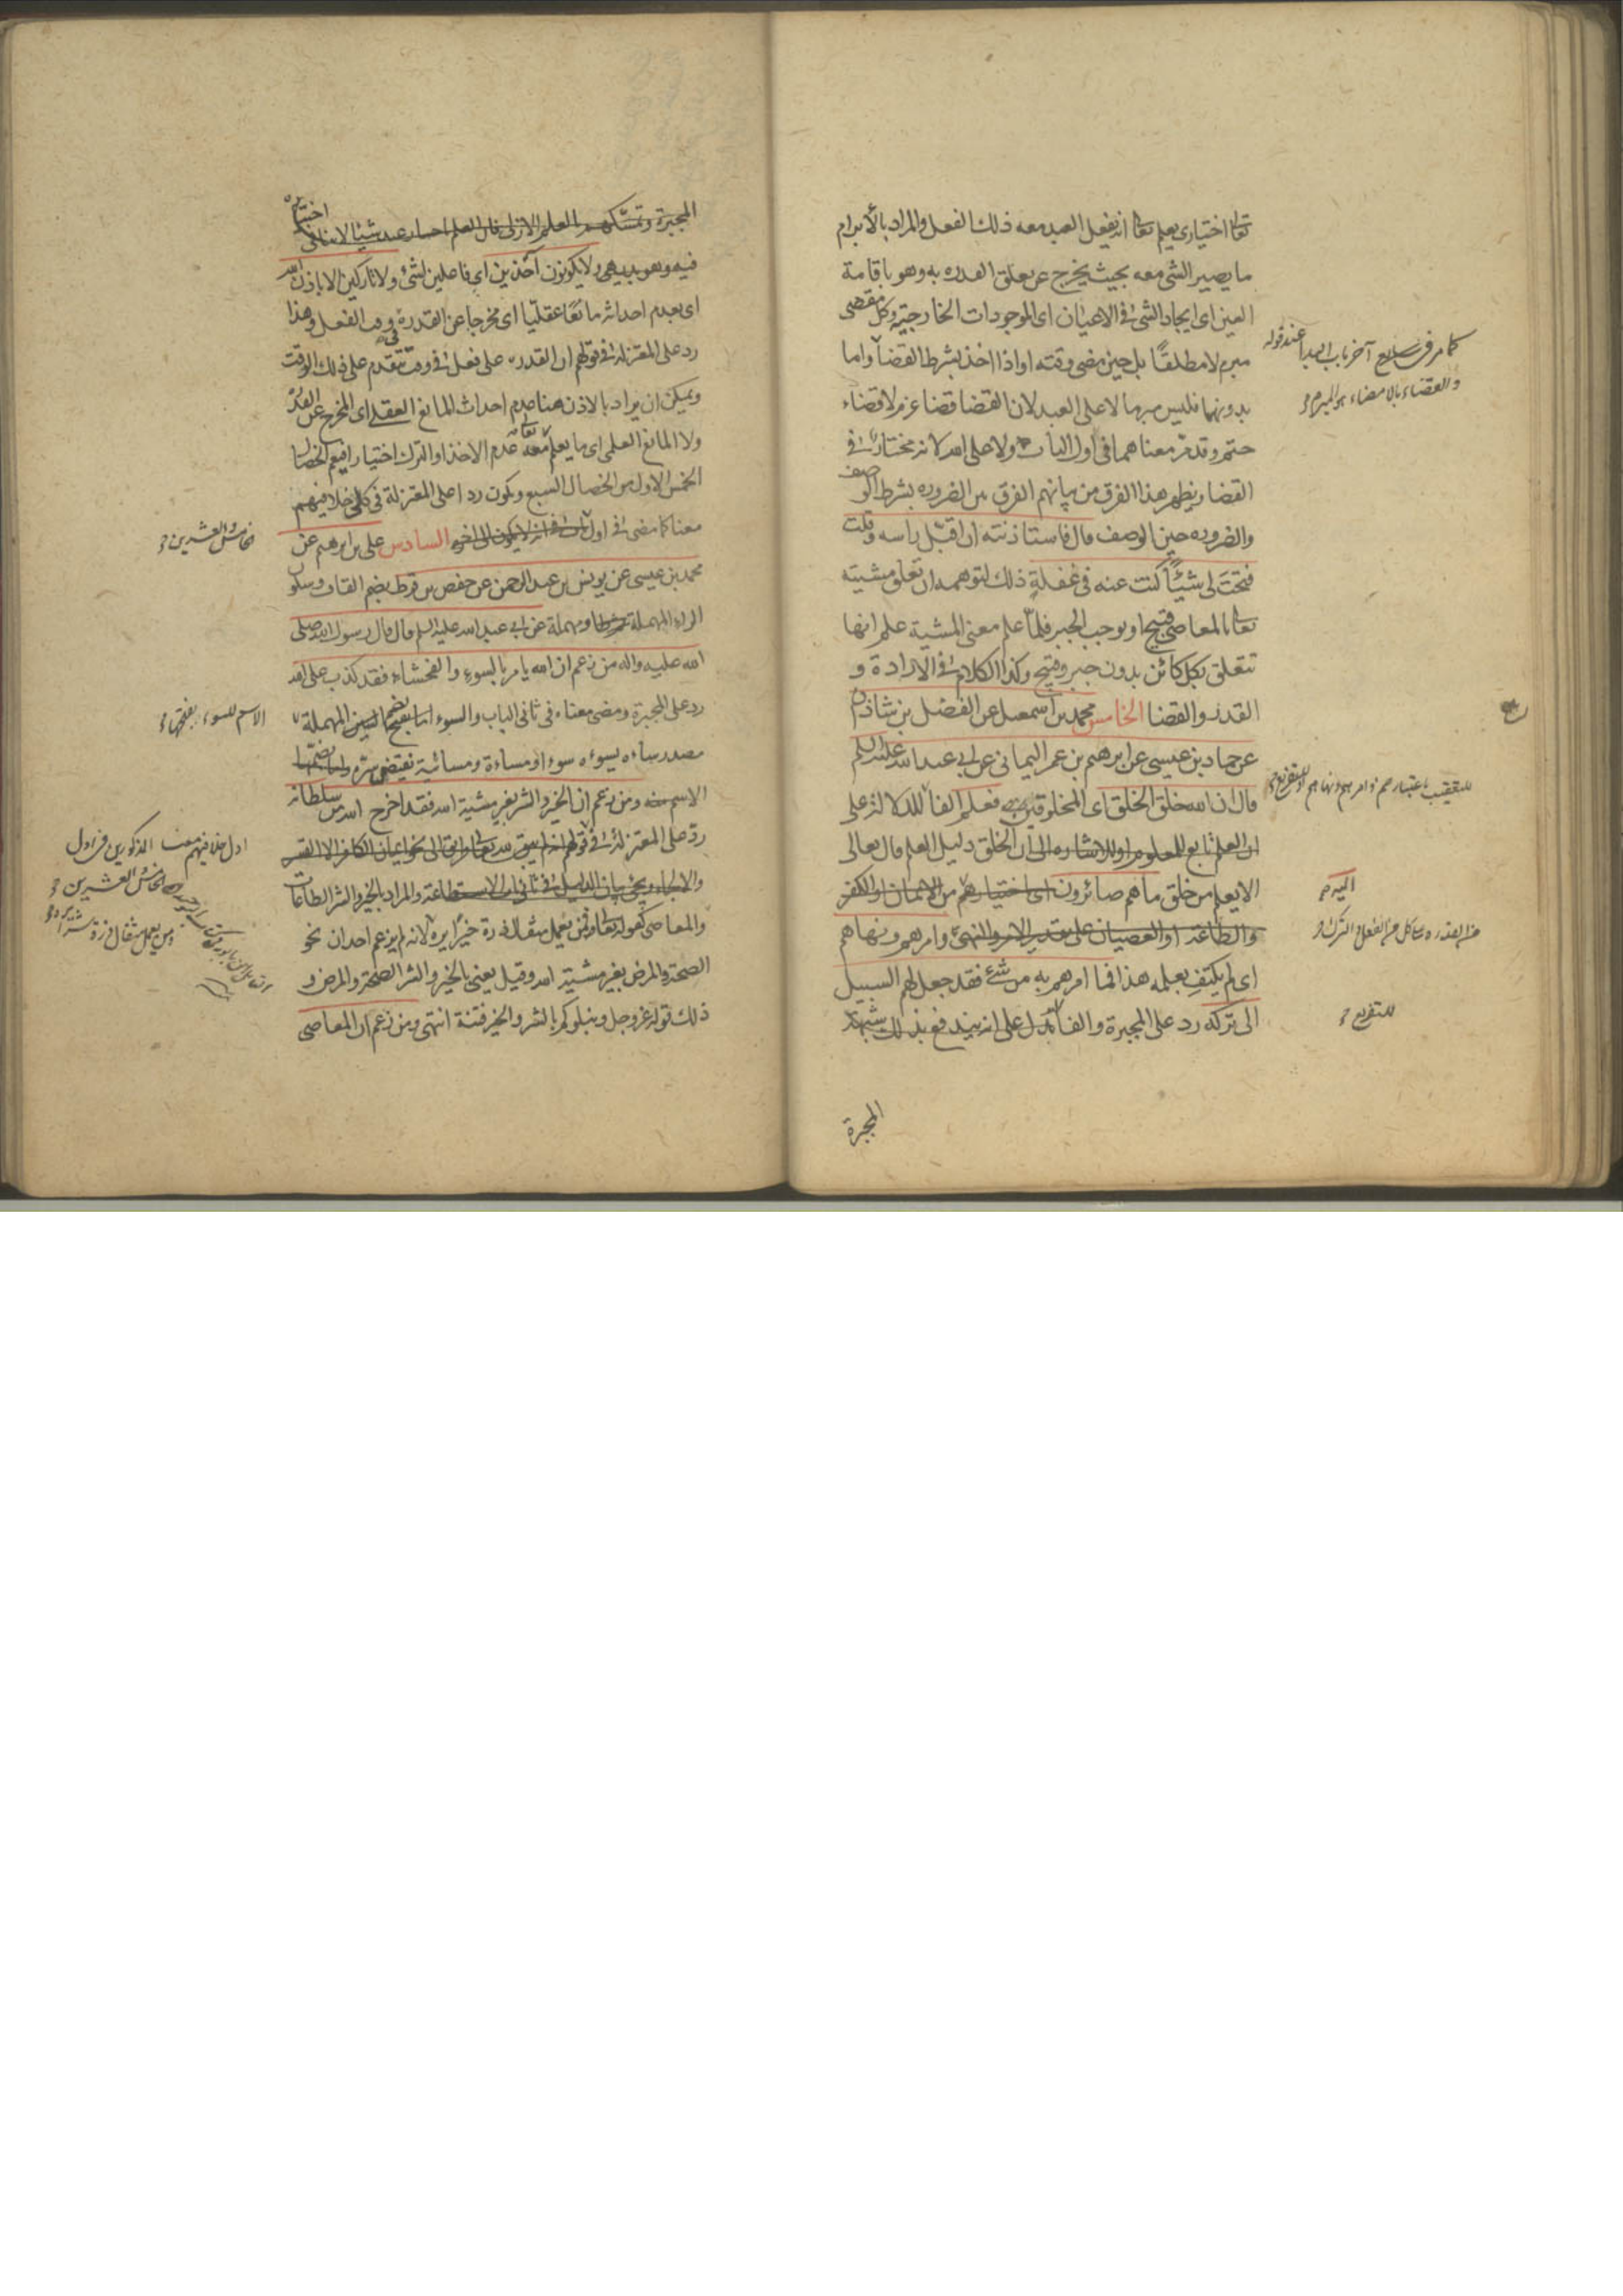 تعالى اختياري يعلم تعالى انه يفعل العبد معه ذلك الفعل والمراد بالابرام
ما يصير الشي معه بحيث يخرج عن تعلق القدره به وهو باقامة
العين اى ايجاد الشئ في الاعيان اى الموجودات الخارجية وكل مقضى
مبرم لا مطلقًا بل حين مضى وقته او اذا اخذ بشرط القضا واما
بدونهما فليس مبرما لا على العبد لان القضا قضا عزم لا قضاء
حتم وقد مر معناهما في اول الباب ولا على الله لانه مختار في
القضا ويظهر هذا الفرق من بيانهم الفرق بين الضروره بشرط الوصف
والضروره حين الوصف قال فاستاذنته ان اقبّل راسه وقلت
فتحتَ لى شيئًا كنت عنه في غفلةٍ ذلك لتوهمه ان تعلق مشيته
تعالى بالمعاصي قبيح او يوجب الجبر فلمّا علم معنى المشية علم انها
تتعلق بكل كائن بدون جبر وقبح وكذا الكلام في الارادة و
القدر والقضا الخامس محمد بن اسمعيل عن الفضل بن شاذان
عن حماد بن عيسى عن ابرهيم بن عمر اليماني عن ابي عبد الله عليه السلم
قال ان الله خلق الخلق اى المخلوقين فعلم الفا للدلالة على
ان العلم تابع للمعلوم او للاشاره الى ان الخلق دليل العلم قال تعالى
الا يعلم من خلق ما هم صائرون اى اختيارهم من الايمان او الكفر
والطاعة او العصيان على تقدير الامر والنهى وامرهم ونهاهم
اى لم يكتفِ بعلمه هذا فما امرهم به من شئ فقد جعل لهم السبيل
الى تركه رد على المجبرة والفا تدل على انه يندفع بذلك شبهة
المجبرة
كما مر في سابع آخر باب البدا عند قوله
والقضاء بالامضاء هو المبرم
للتعقيب باعتبار هم وامرهم ونهاهم او للتفريع
اليه
من القدره على كل من الفعل والترك
للتفريع
المجبرة وتمسكهم بالعلم الازلى فان العلم باختيار عبد شيئا لا ينافى اختياره
فيه وهو بديهى ولا يكونون آخذين اى فاعلين لشئ ولا تاركين الا باذن الله
اى بعدم احداثه مانعًا عقليّا اى مخرجا عن القدرة في وقت الفعل وهذا
رد على المعتزلة في قولهم ان القدرة على فعل في وقت تتقدم على ذلك الوقت
ويمكن ان يراد بالاذن هنا عدم احداث المانع العقلى اى المخرج عن القدرة
ولا المانع العلمى اى ما يعلم تعالى معه عدم الاخذ او الترك اختيارا فيعم الخصال
الخمس الاول من الخصال السبع ويكون ردا على المعتزلة في كلى خلافيهم
معنا كما مضى في اول باب في انه لا يكون الى اخره السادس على بن ابرهيم عن
محمد بن عيسى عن يونس بن عبد الرحمن عن حفص بن قرط بضم القاف وسكون
الراء المهملة وطا مهملة عن ابى عبد الله عليه السلم قال قال رسول الله صلى
الله عليه واله من زعم ان الله يامر بالسوء والفحشاء فقد كذب على الله
رد على المجبرة ومضى معناه في ثاني الباب والسوء اما بفتح السين المهملة
مصدر ساءه يسوءه سوءا ومساءة ومسائية نقيض سره واما بضمها
الاسم منه ومن زعم ان الخير والشر بغير مشية الله فقد اخرج الله من سلطانه
ردّ على المعتزلة في قولهم انه لم يبق لله تعالى طريق الى نحو ايمان الكافر الا القسر
والالجاء ويجئ بيان الدليل في ثاني باب الاستطاعة والمراد بالخير والشر الطاعات
والمعاصى كقوله تعالى فمن يعمل مثقال ذرة خيرًا يره لانه لم يزعم احد ان نحو
الصحة والمرض بغير مشية الله وقيل يعنى بالخير والشر الصحة والمرض و
ذلك قوله عز وجل ونبلوكم بالشر والخير فتنة انتهى ومن زعم ان المعاصى
خامس والعشرين
الاسم للسوء بفتحها
اول خلافيهم معنا المذكورين في اول
الخامس والعشرين
ومن يعمل مثقال ذرة شرا يره